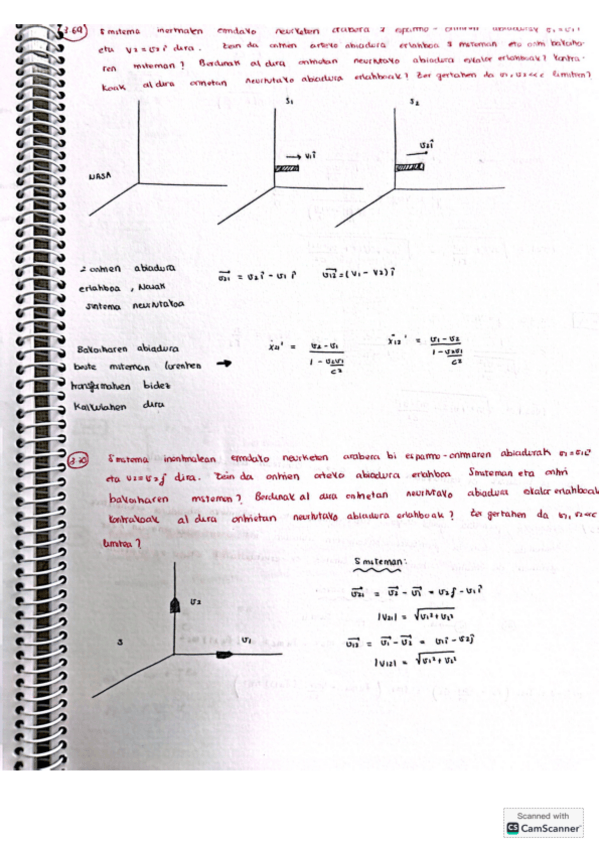 3.69 S sistema inertzialean eginidako neurketen arabera 2 espazio-ontziren abiadurak v₁=v₁î
eta v₂=v₂î dira. Zein da ontzien arteko abiadura erlatiboa S sisteman eta ontzi bakoitza-
ren sisteman? Berdinak al dira ontzietan neurtutako abiadura eskalar erlatiboak? Kontra-
koak al dira ontzietan neurtutako abiadura erlatiboak? Zer gertatzen da v₁,v₂<<c limitean?
S₁ S₂
→ v₁î v₂î
NASA
2 ontzien abiadura v₂₁ = v₂î - v₁î v₁₂ = (v₁ - v₂)î
erlatiboa, Nasak
sistema neurtutakoa
Bakoitzaren abiadura ẋ₂₁' = v₂-v₁ / 1 - v₂v₁/c² ẋ₁₂' = v₁-v₂ / 1 - v₂v₁/c²
beste sisteman Lorentzen →
transformazioen bidez
Kalkulatzen dira
3.70 S sistema inertzialean egindako neurketen arabera bi espazio-ontziren abiadurak v₁=v₁î
eta v₂=v₂ĵ dira. Zein da ontzien arteko abiadura erlatiboa S sisteman eta ontzi
bakoitzaren sisteman? Berdinak al dira ontzietan neurtutako abiadura eskalar erlatiboak
Kontrakoak al dira ontzietan neurtutako abiadura erlatiboak? Zer gertatzen da v₁,v₂<<c
limitea?
S sisteman:
v₂ v₂₁ = v₂ - v₁ = v₂ĵ - v₁î
|v₂₁| = √v₁²+v₂²
S v₁ v₁₂ = v₁ - v₂ = v₁î - v₂ĵ
|v₁₂| = √v₁²+v₂²
Scanned with
CS CamScanner